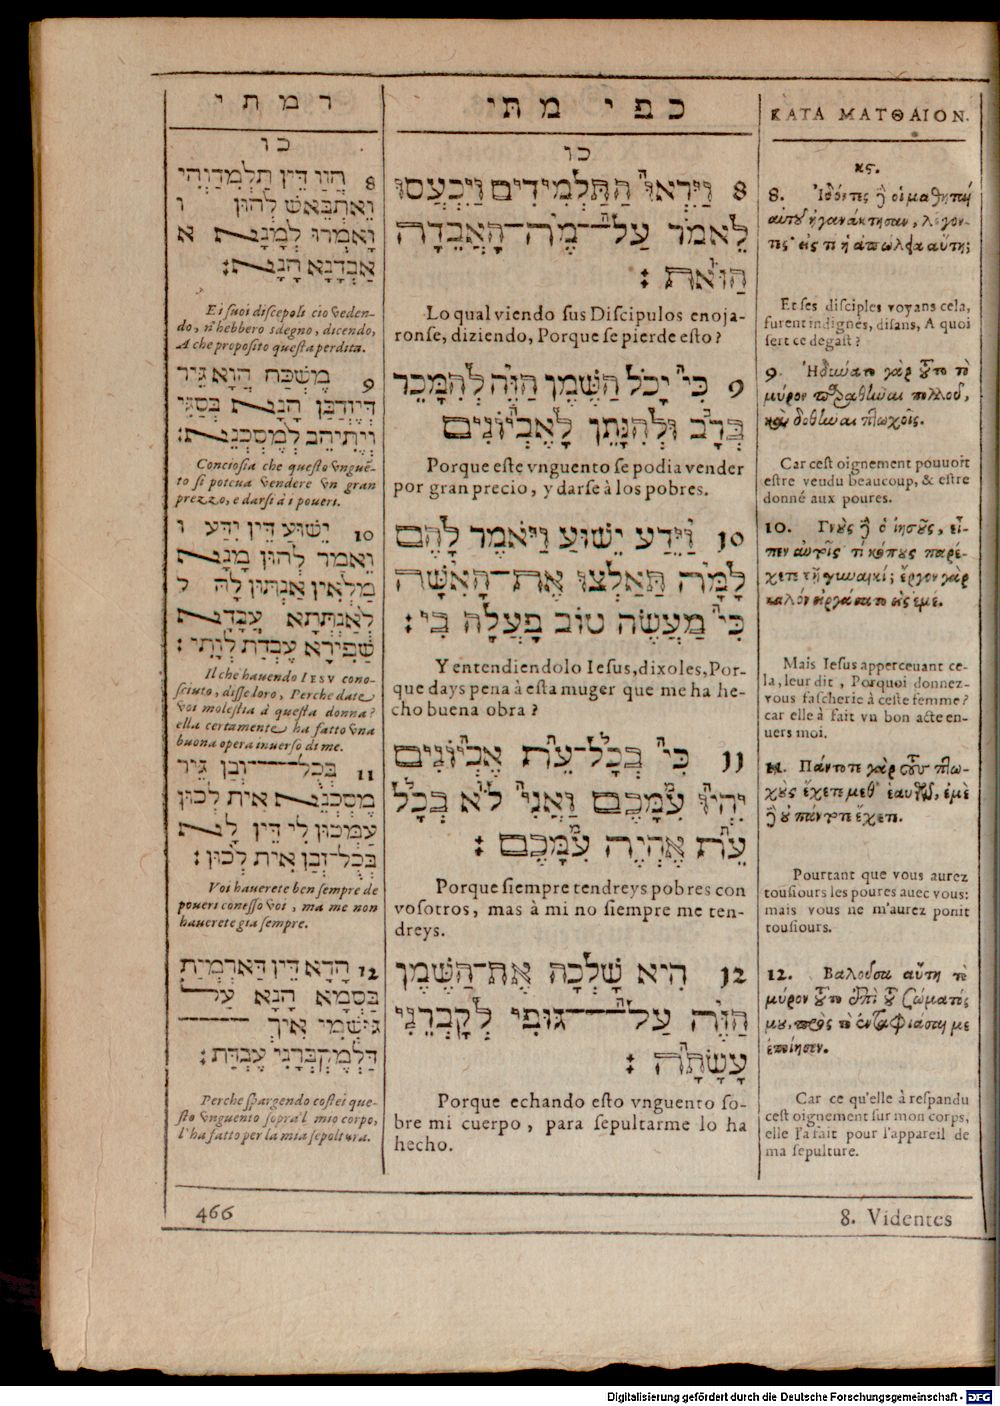 דמתי
כו
8 חֲזַו דֵּין תַּלְמִדַוְהִי
וֶאתְבֵּאשׁ לְהוּן ו
וָאמְרוּ לְמָנָא א
אַבְדָנָא הָנָא:
E i suoi discepoli ciò veden-
do, n'hebbero sdegno, dicendo,
A che proposito questa perdita.
9 מֶשְׁכַּח הֲוָא גֵּיר
דְּיֶזְדַּבַּן הָנָא בְּסַגִּי
וְיֶתִיהֵב לְמֶסְכִּנֵא:
Conciosia che questo vnguē-
to si poteua vendere vn gran
prezzo, e darsi à i poueri.
10 יֵשׁוּעַ דֵּין יִדַע ו
וֶאֵמַר לְהוּן מָנָא
מַלְאִין אַנְתּוּן לָהּ ל
לְאַנְתְּתָא עֲבָדָא
שַׁפִּירָא עֶבְדַת לְוָתִי:
Il che hauendo IESV cono-
sciuto, disse loro, Perche date
voi molestia à questa donna?
ella certamente ha fatto vna
buona opera inuerso di me.
11 בְּכֻל־זְבַן גֵּיר
מֶסְכִּנֵא אִית לְכוּן
עַמְּכוּן לִי דֵּין לָא
בְּכֻל־זְבַן אִית לְכוּן:
Voi hauerete ben sempre de
poueri con esso voi, ma me non
hauerete gia sempre.
12 הָדֵא דֵּין דַּאַרְמְיַת
בֶּסְמָא הָנָא עַל־
גִּוּשְׁמִי אֵיךְ
דַּלְמֶקְבְּרָנִי עֶבְדַת:
Perche spargendo costei que-
sto vnguento sopra'l mio corpo,
l'ha fatto per la mia sepoltura.
כפי מתי
כו
8 וַיִּרְאוּ הַתַּלְמִידִים וַיִּכְעֲסוּ
לֵאמֹר עַל־מֶה־הָאֲבֵדָה
הַזֹּאת:
Lo qual viendo sus Discipulos enoja-
ronse, diziendo, Porque se pierde esto?
9 כִּי יָכֹל הַשֶּׁמֶן הַזֶּה לְהִמָּכֵר
בְּרָב וּלְהִנָּתֵן לָאֶבְיוֹנִים
Porque este vnguento se podia vender
por gran precio, y darse à los pobres.
10 וַיֵּדַע יֵשׁוּעַ וַיֹּאמֶר לָהֶם
לָמָּה תַּאַלְצוּ אֶת־הָאִשָּׁה
כִּי מַעֲשֶׂה טוֹב פָּעֲלָה בִּי:
Y entendiendolo Iesus, dixoles, Por-
que days pena à esta muger que me ha he-
cho buena obra?
11 כִּי בְּכָל־עֵת אֶבְיוֹנִים
יִהְיוּ עִמָּכֶם וַאֲנִי לֹא בְּכָל
עֵת אֶהְיֶה עִמָּכֶם:
Porque siempre tendreys pobres con
vosotros, mas à mi no siempre me ten-
dreys.
12 הִיא שָׁלְכָה אֶת־הַשֶּׁמֶן
הַזֶּה עַל־גּוּפִי לְקָבְרֵנִי
עָשָׂתָה:
Porque echando esto vnguento so-
bre mi cuerpo, para sepultarme lo ha
hecho.
ΚΑΤΑ ΜΑΤΘΑΙΟΝ.
κς.
8. Ἰδόντες δὲ οἱ μαθηταὶ
αὐτοῦ ἠγανάκτησαν, λέγον-
τες· εἰς τί ἡ ἀπώλεια αὕτη;
Et ses disciples voyans cela,
furent indignés, disans, A quoi
sert ce degast?
9. Ἠδύνατο γὰρ τοῦτο τὸ
μύρον πραθῆναι πολλοῦ,
καὶ δοθῆναι πτωχοῖς.
Car cest oignement pouuoit
estre vendu beaucoup, & estre
donné aux poures.
10. Γνοὺς δὲ ὁ ἰησοῦς, εἶ-
πεν αὐτοῖς· τί κόπους παρέ-
χετε τῇ γυναικί; ἔργον γὰρ
καλὸν εἰργάσατο εἰς ἐμέ.
Mais Iesus apperceuant ce-
la, leur dit, Porquoi donnez-
vous fascherie à ceste femme?
car elle à fait vn bon acte en-
uers moi.
11. Πάντοτε γὰρ τοὺς πτω-
χοὺς ἔχετε μεθ᾽ ἑαυτῶν, ἐμὲ
δὲ οὐ πάντοτε ἔχετε.
Pourtant que vous aurez
tousiours les poures auec vous:
mais vous ne m'aurez ponit
tousiours.
12. Βαλοῦσα αὕτη τὸ
μύρον τοῦτο ἐπὶ τοῦ σώματός
μου, πρὸς τὸ ἐνταφιάσαι με
ἐποίησεν.
Car ce qu'elle à respandu
cest oignement sur mon corps,
elle l'a fait pour l'appareil de
ma sepulture.
466
8. Videntes
Digitalisierung gefördert durch die Deutsche Forschungsgemeinschaft - DFG